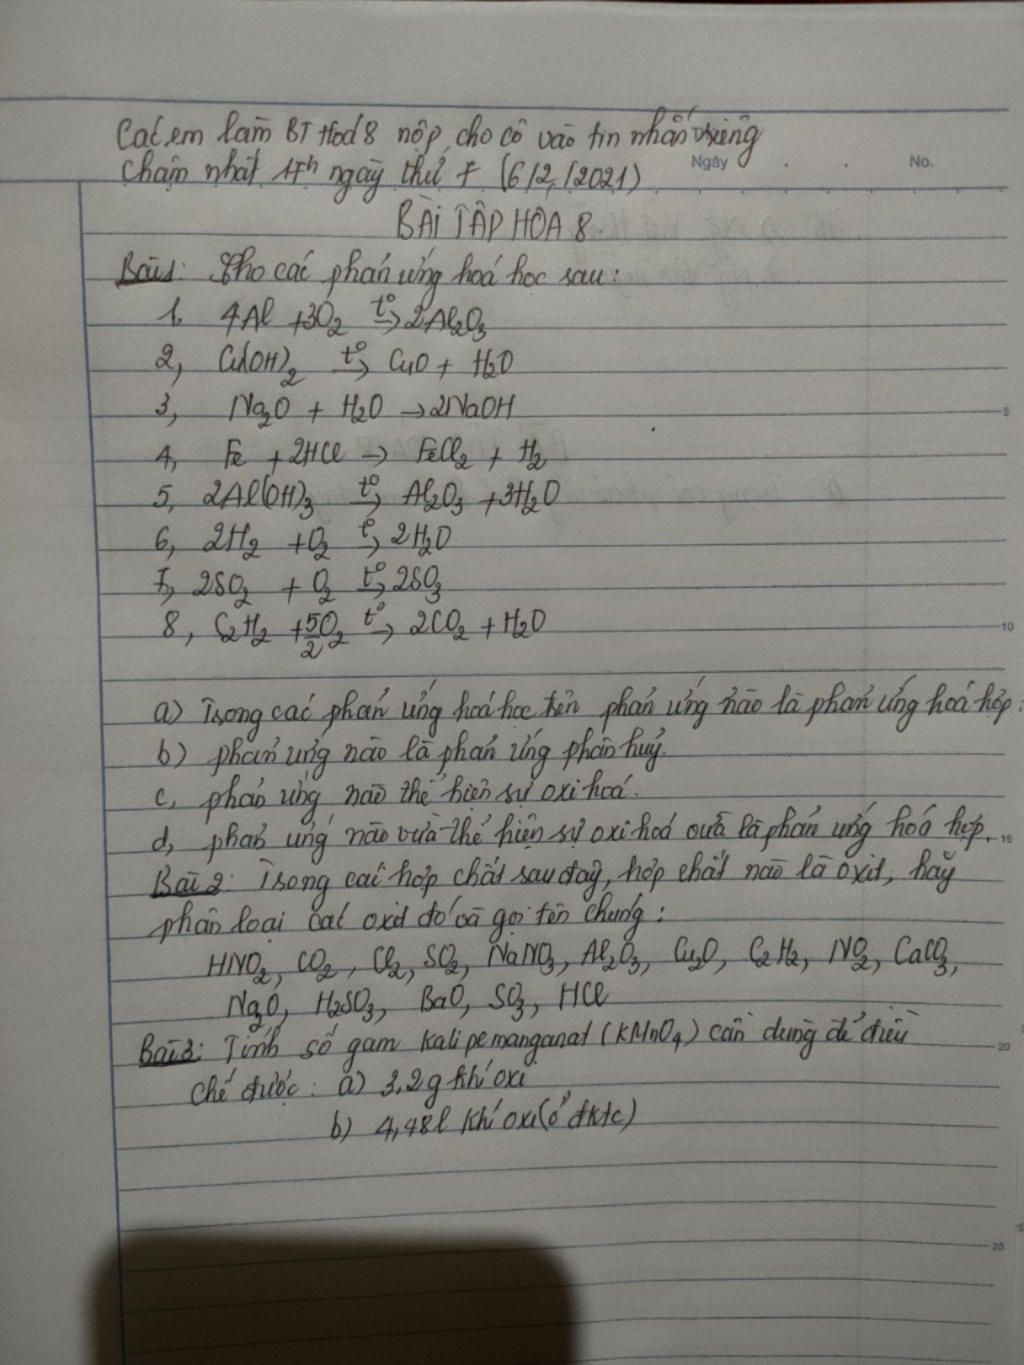 Các em làm BT Hoá 8 nộp cho cô vào tin nhắn riêng
chậm nhất 17h ngày thứ 7 (6/2/2021)
Ngày No.
BÀI TẬP HÓA 8
Bài 1: Cho các phản ứng hoá học sau:
1, 4Al + 3O₂ →(t°) 2Al₂O₃
2, Cu(OH)₂ →(t°) CuO + H₂O
3, Na₂O + H₂O → 2NaOH
5
4, Fe + 2HCl → FeCl₂ + H₂
5, 2Al(OH)₃ →(t°) Al₂O₃ + 3H₂O
6, 2H₂ + O₂ →(t°) 2H₂O
7, 2SO₂ + O₂ →(t°) 2SO₃
8, C₂H₂ + 5/2O₂ →(t°) 2CO₂ + H₂O
10
a) Trong các phản ứng hoá học trên phản ứng nào là phản ứng hoá hợp.
b) phản ứng nào là phản ứng phân huỷ.
c, phản ứng nào thể hiện sự oxi hoá.
d, phản ứng nào vừa thể hiện sự oxi hoá vừa là phản ứng hoá hợp.
15
Bài 2: Trong các hợp chất sau đây, hợp chất nào là oxit, hãy
phân loại các oxit đó và gọi tên chúng:
HNO₂, CO₂, Cl₂, SO₂, NaNO₃, Al₂O₃, Cu₂O, C₂H₂, NO₂, CaCO₃,
Na₂O, H₂SO₃, BaO, SO₃, HCl
Bài 3: Tính số gam kali pemanganat (KMnO₄) cần dùng để điều
20
chế được: a) 3,2g khí oxi
b) 4,48l khí oxi (ở đktc)
25